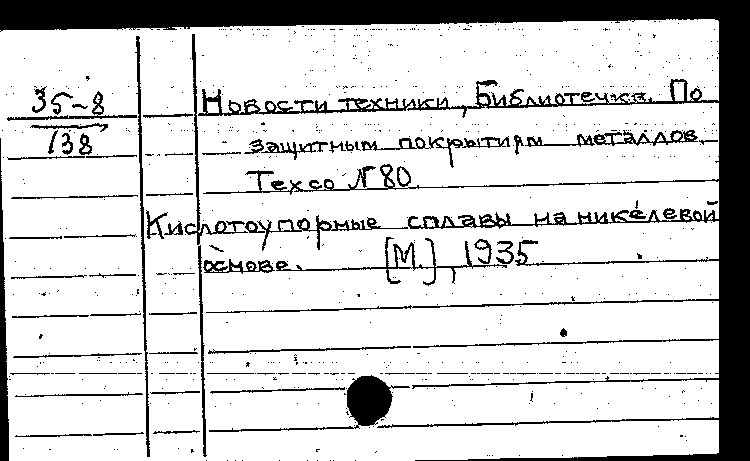 35-8
138
Новости техники, Библиотечка. По
защитным покрытиям металлов.
Техсо №80.
Кислотоупорные сплавы на никелевой
основе. [М.], 1935